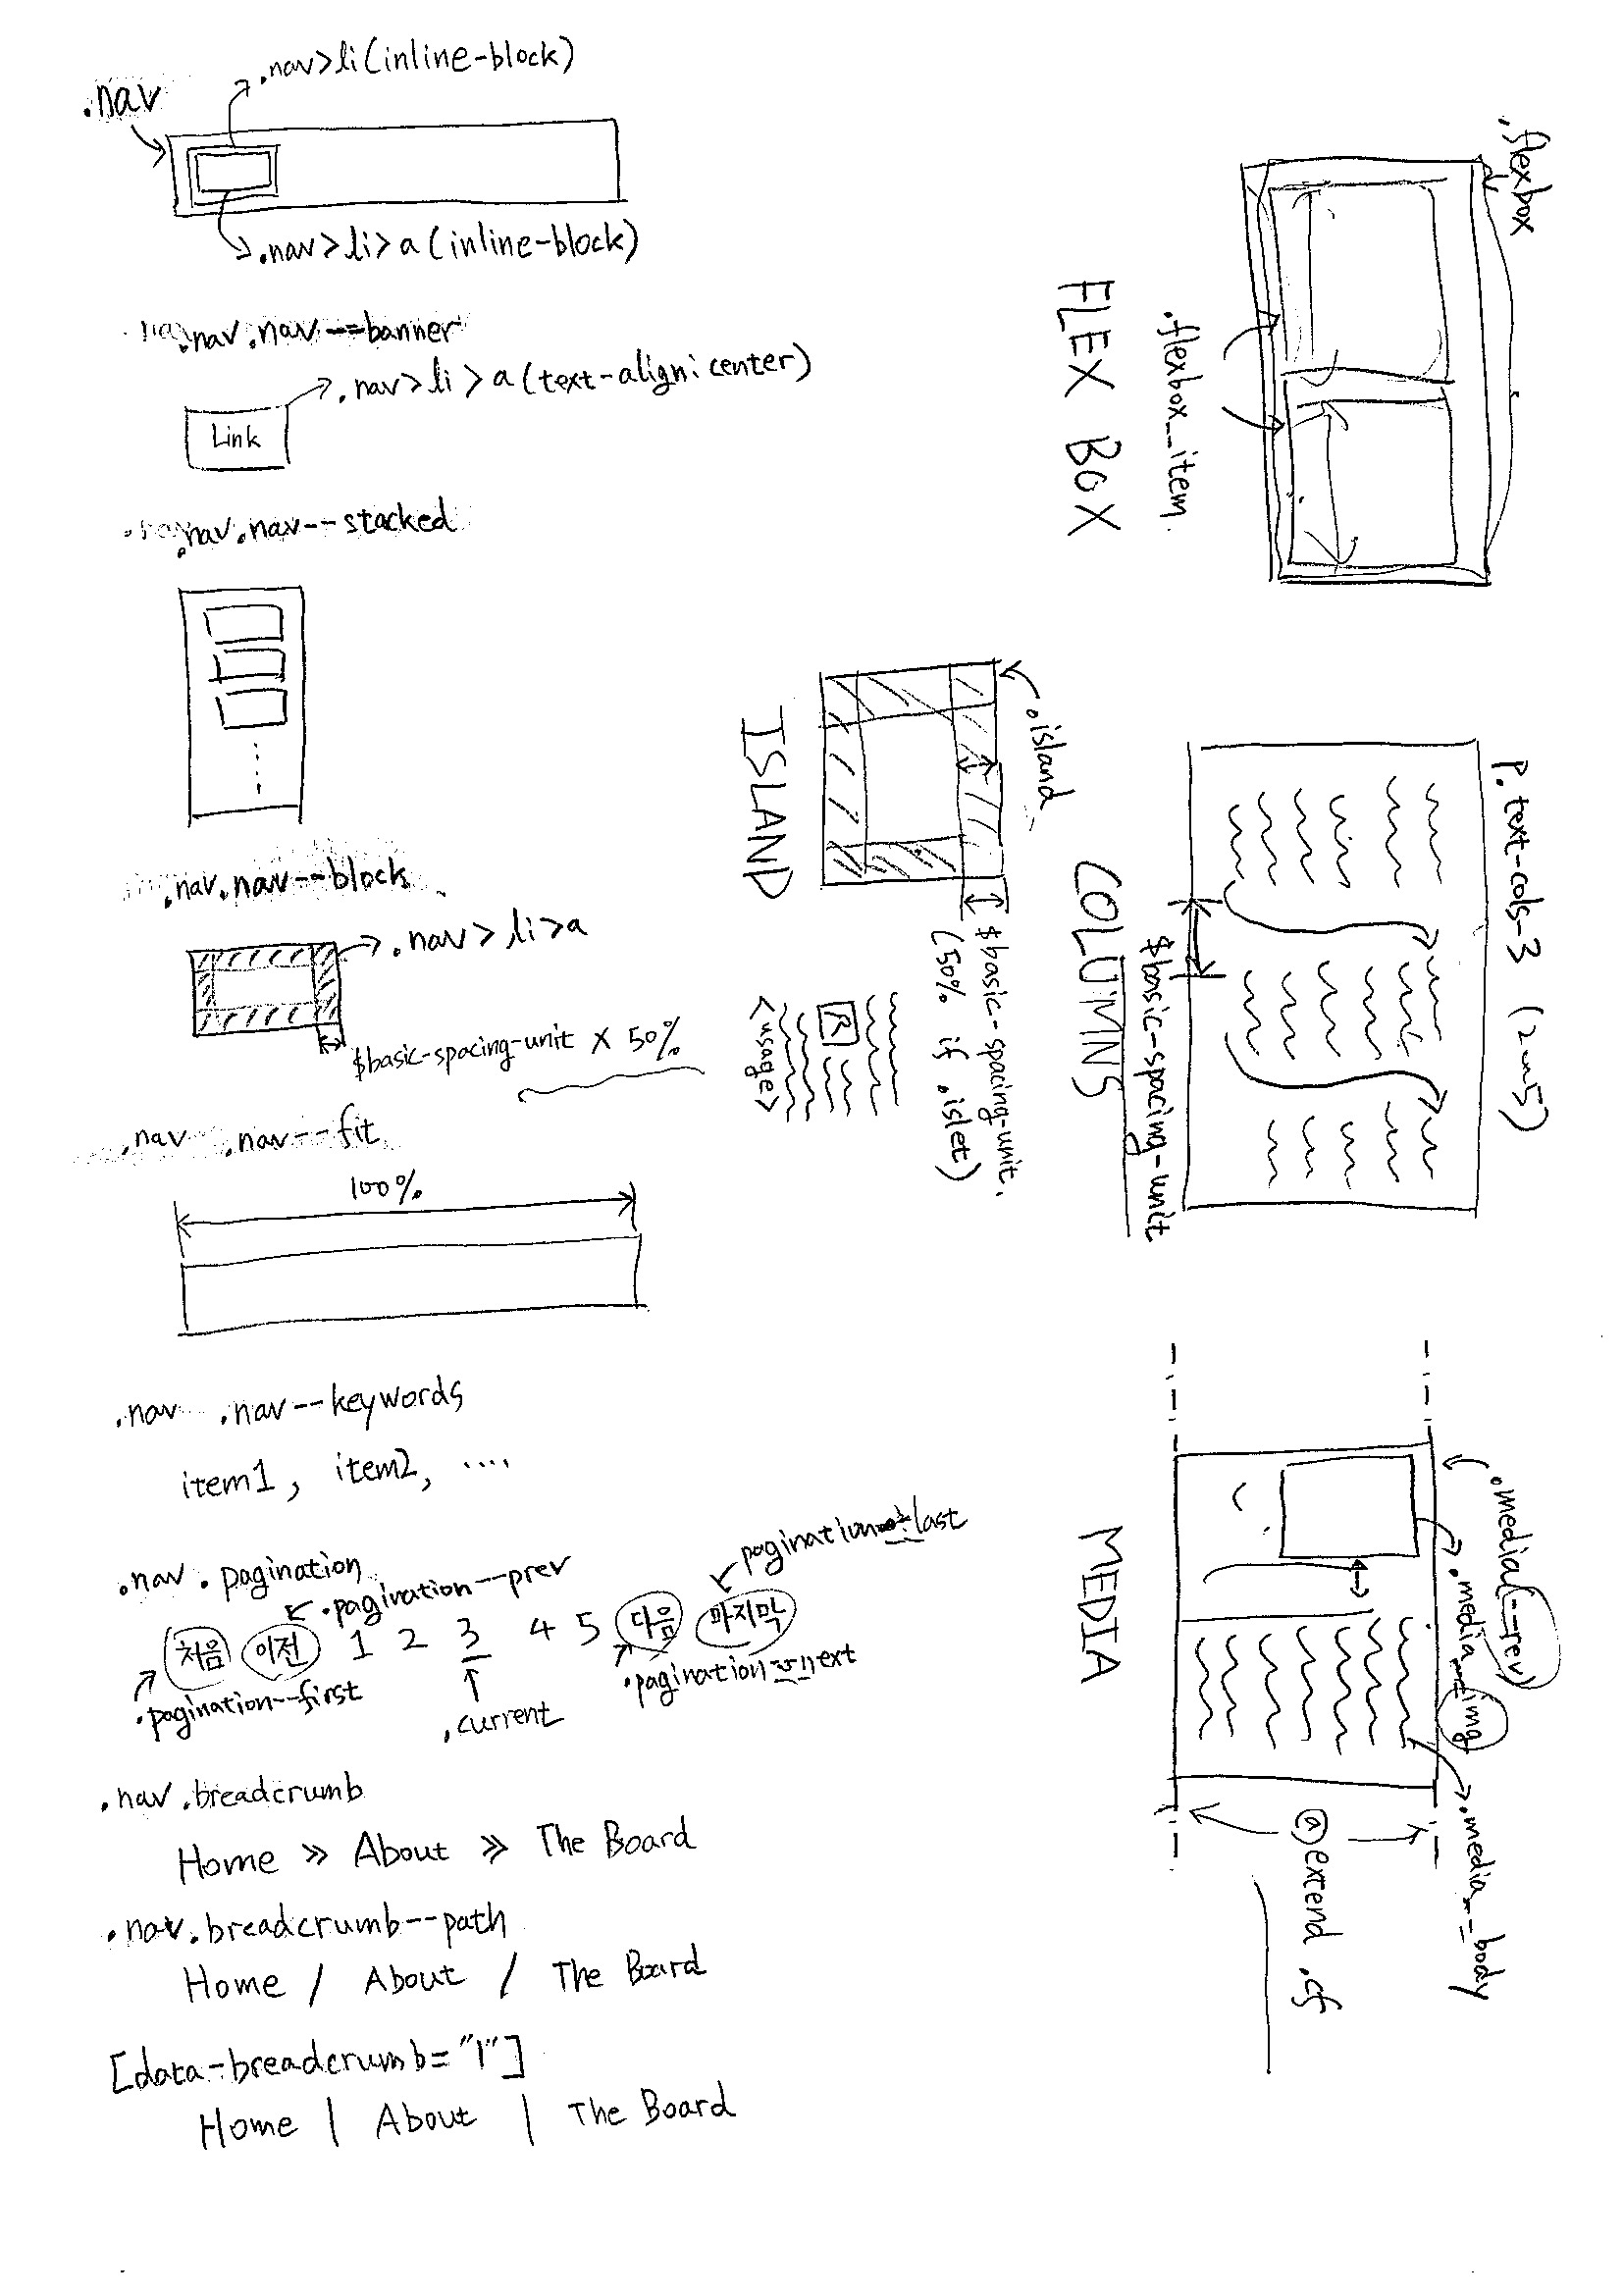 .nav
.nav>li(inline-block)
.nav>li>a(inline-block)
.nav.nav--banner
.nav>li>a(text-align:center)
Link
.nav.nav--stacked
.nav.nav--block
.nav>li>a
$basic-spacing-unit × 50%
.nav .nav--fit
100%
.nav .nav--keywords
item1, item2, ....
.nav.pagination
.pagination--prev
pagination--last
처음 이전 1 2 3 4 5 다음 마지막
.pagination--first
.current
.pagination--next
.nav.breadcrumb
Home » About » The Board
.nav.breadcrumb--path
Home / About / The Board
[data-breadcrumb="|"]
Home | About | The Board
.flexbox
.flexbox__item
FLEX BOX
.island
ISLAND
$basic-spacing-unit.
(50% if .islet)
R
<usage>
P.text-cols-3 (2~5)
$basic-spacing-unit
COLUMNS
.media(--rev)
.media__img
.media__body
MEDIA
@extend .cf